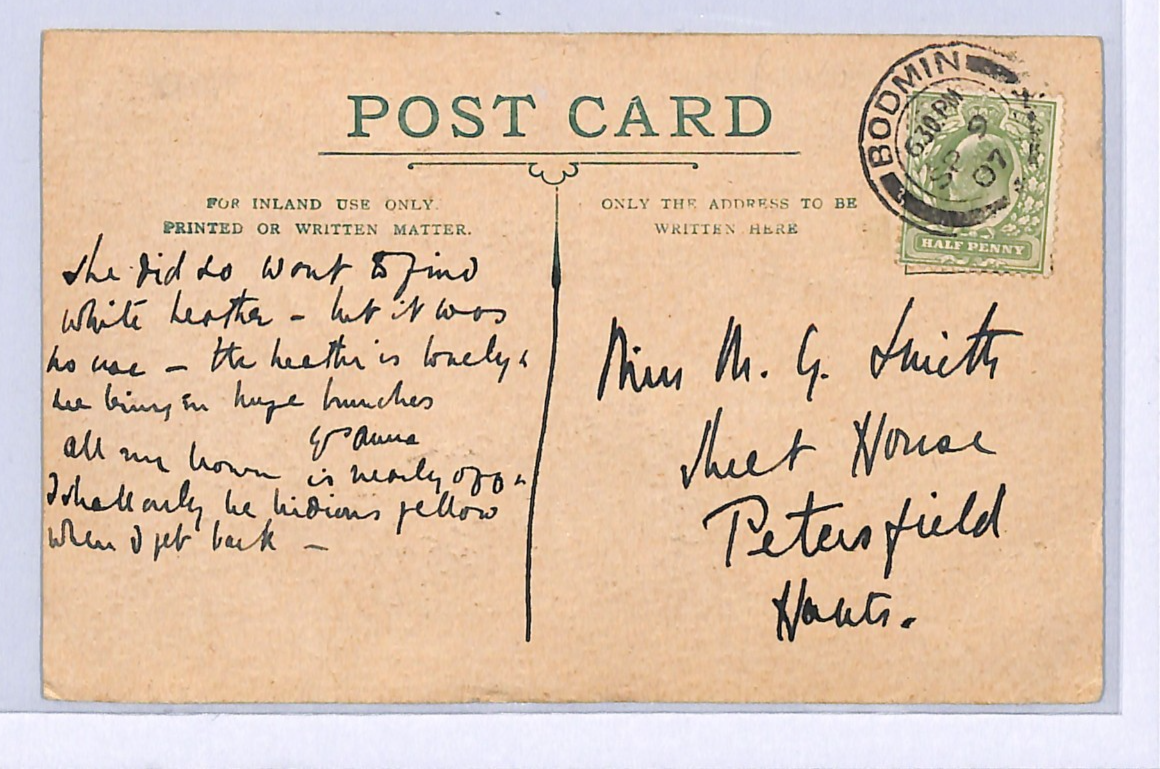 POST CARD
FOR INLAND USE ONLY.
PRINTED OR WRITTEN MATTER.
ONLY THE ADDRESS TO BE
WRITTEN HERE
BODMIN
6.30 PM
SP 9
07
HALF PENNY
she did so want to find
white heather – but it was
no use – the heather is lovely &
we bring in huge bunches
all my brown is nearly off &
I shall only be hidious yellow
when I get back –
Miss M. G. Smith
Sheet House
Petersfield
Hants.